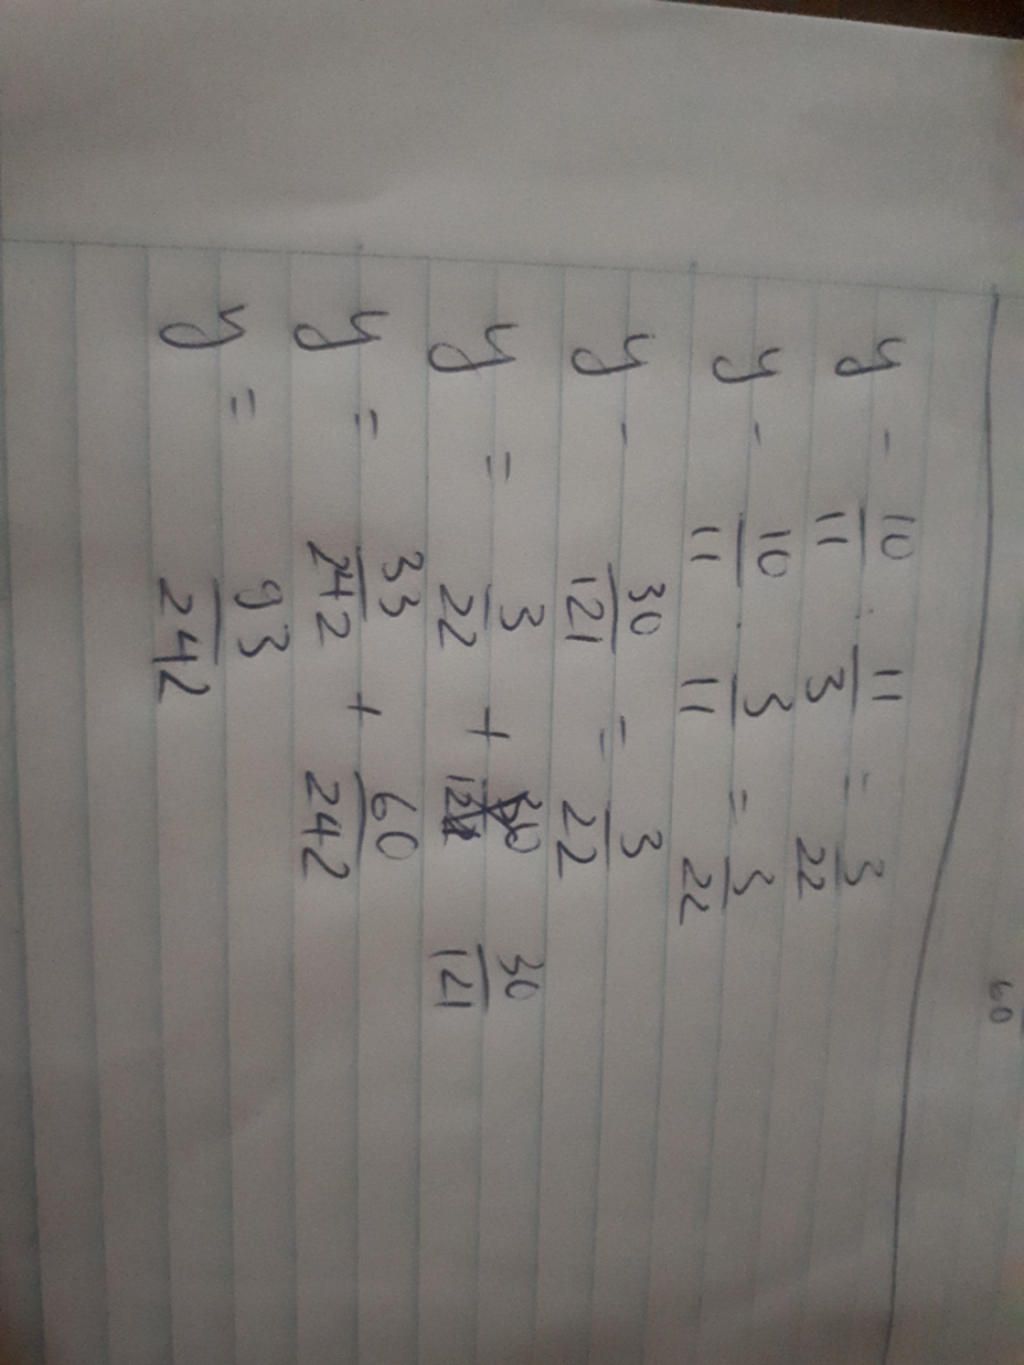 60
y - 10/11 · 11/3 = 3/22
y - 10/11 · 3/11 = 3/22
y - 30/121 = 3/22
y = 3/22 + 30/121
y = 33/242 + 60/242
y = 93/242